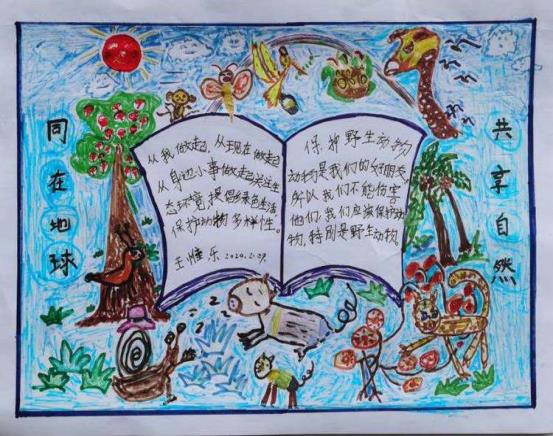 同在地球
从我做起，从现在做起
从身边小事做起关注生
态环境，提倡绿色生活
保护动物多样性。
王惟乐 2024.2.29
保护野生动物
动物是我们的好朋友
所以我们不能伤害
他们，我们应该保护动
物，特别是野生动物
共享自然